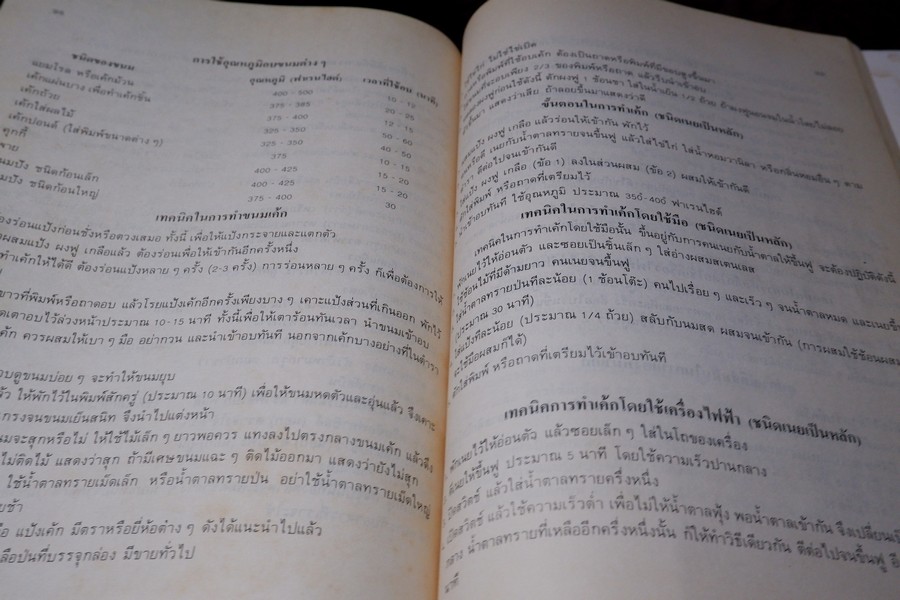 การใช้อุณหภูมิอบขนมต่าง ๆ
ชนิดของขนม อุณหภูมิ (ฟาเรนไฮต์) เวลาที่ใช้อบ (นาที)
แยมโรล หรือเค้กม้วน 400 - 500 10 - 12
เค้กแผ่นบาง เพื่อทำเค้กชั้น 375 - 385 20 - 25
เค้กถ้วย 375 - 400 12 - 15
เค้กใส่ผลไม้ 325 - 350 50 - 60
เค้กปอนด์ (ใส่พิมพ์ขนาดต่าง ๆ) 325 - 350 40 - 50
คุกกี้ 375 10 - 15
400 - 425 15 - 20
ชนิดก้อนเล็ก 400 - 425 15 - 20
ชนิดก้อนใหญ่ 375 - 400 30
เทคนิคในการทำขนมเค้ก
องร่อนแป้งก่อนชั่งหรือตวงเสมอ ทั้งนี้ เพื่อให้แป้งกระจายและแตกตัว
อผสมแป้ง ผงฟู เกลือแล้ว ต้องร่อนเพื่อให้เข้ากันอีกครั้งหนึ่ง
ทำเค้กให้ได้ดี ต้องร่อนแป้งหลาย ๆ ครั้ง (2-3 ครั้ง) การร่อนหลาย ๆ ครั้ง ก็เพื่อต้องการให้
ขาวที่พิมพ์หรือถาดอบ แล้วโรยแป้งเค้กอีกครั้งเพียงบาง ๆ เคาะแป้งส่วนที่เกินออก พักไว้
ดเตาอบไว้ล่วงหน้าประมาณ 10-15 นาที ทั้งนี้เพื่อให้เตาร้อนทันเวลา นำขนมเข้าอบ
ค้ก ควรผสมให้เบา ๆ มือ อย่ากวน และนำเข้าอบทันที นอกจากเค้กบางอย่างที่ในตำรา
ดดูขนมบ่อย ๆ จะทำให้ขนมยุบ
ล้ว ให้พักไว้ในพิมพ์สักครู่ (ประมาณ 10 นาที) เพื่อให้ขนมหดตัวและอุ่นแล้ว จึงเคาะ
กรงจนขนมเย็นสนิท จึงนำไปแต่งหน้า
มจะสุกหรือไม่ ให้ใช้ไม้เล็ก ๆ ยาวพอควร แทงลงไปตรงกลางขนมเค้ก แล้วดึง
ไม่ติดไม้ แสดงว่าสุก ถ้ามีเศษขนมแฉะ ๆ ติดไม้ออกมา แสดงว่ายังไม่สุก
ใช้น้ำตาลทรายเม็ดเล็ก หรือน้ำตาลทรายป่น อย่าใช้น้ำตาลทรายเม็ดใหญ่
ยช้า
อ แป้งเค้ก มีตราหรือยี่ห้อต่าง ๆ ดังได้แนะนำไปแล้ว
ลือป่นที่บรรจุกล่อง มีขายทั่วไป
ไม่ใส่ไข่เป็ด
ขั้นตอนในการทำเค้ก (ชนิดเนยเป็นหลัก)
แป้ง ผงฟู เกลือ แล้วร่อนให้เข้ากัน พักไว้
เนยกับน้ำตาลทรายจนขึ้นฟู แล้วใส่ไข่ไก่ ใส่น้ำหอมวานิลา หรือกลิ่นหอมอื่น ๆ ตาม
ดีต่อไปจนเข้ากันดี
แป้ง ผงฟู เกลือ (ข้อ 1) ลงในส่วนผสม (ข้อ 2) ผสมให้เข้ากันดี
ใส่พิมพ์ หรือถาดที่เตรียมไว้
นำเข้าอบทันที ใช้อุณหภูมิ ประมาณ 350-400 ฟาเรนไฮต์
เทคนิคในการทำเค้กโดยใช้มือ (ชนิดเนยเป็นหลัก)
เทคนิคในการทำเค้กโดยใช้มือนั้น ขึ้นอยู่กับการคนเนยกับน้ำตาลให้ขึ้นฟู จะต้องปฏิบัติดังนี้
พักเนยไว้ให้อ่อนตัว และซอยเป็นชิ้นเล็ก ๆ ใส่อ่างผสมสเตนเลส
ใช้ช้อนไม้ที่มีด้ามยาว คนเนยจนขึ้นฟู
ใส่น้ำตาลทรายป่นทีละน้อย (1 ช้อนโต๊ะ) คนไปเรื่อย ๆ และเร็ว ๆ จนน้ำตาลหมด และเนยขึ้น
(ประมาณ 30 นาที)
ใส่แป้งทีละน้อย (ประมาณ 1/4 ถ้วย) สลับกับนมสด ผสมจนเข้ากัน (การผสมใช้ช้อนผสม
จะใช้มือผสมก็ได้)
ตักใส่พิมพ์ หรือถาดที่เตรียมไว้เข้าอบทันที
เทคนิคการทำเค้กโดยใช้เครื่องไฟฟ้า (ชนิดเนยเป็นหลัก)
พักเนยไว้ให้อ่อนตัว แล้วซอยเล็ก ๆ ใส่ในโถของเครื่อง
ตีเนยให้ขึ้นฟู ประมาณ 5 นาที โดยใช้ความเร็วปานกลาง
ปิดสวิตช์ แล้วใส่น้ำตาลทรายครึ่งหนึ่ง
เปิดสวิตช์ แล้วใช้ความเร็วต่ำ เพื่อไม่ให้น้ำตาลฟุ้ง พอน้ำตาลเข้ากัน จึงเปลี่ยนเป็น
กลาง น้ำตาลทรายที่เหลืออีกครึ่งหนึ่งนั้น ก็ให้ทำวิธีเดียวกัน ตีต่อไปจนขึ้นฟู อี
นาที